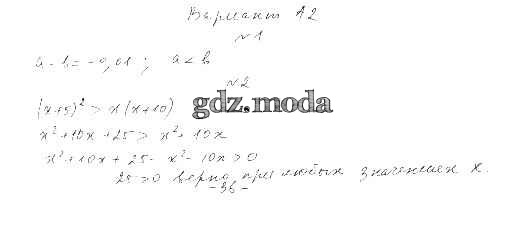 Вариант А2
№1
a - b = -0,01 ; a < b
№2
(x+5)² > x(x+10)
gdz.moda
x²+10x+25 > x²+10x
x²+10x+25 - x² - 10x > 0
25 > 0 верно при любых значениях x.
- 36 -